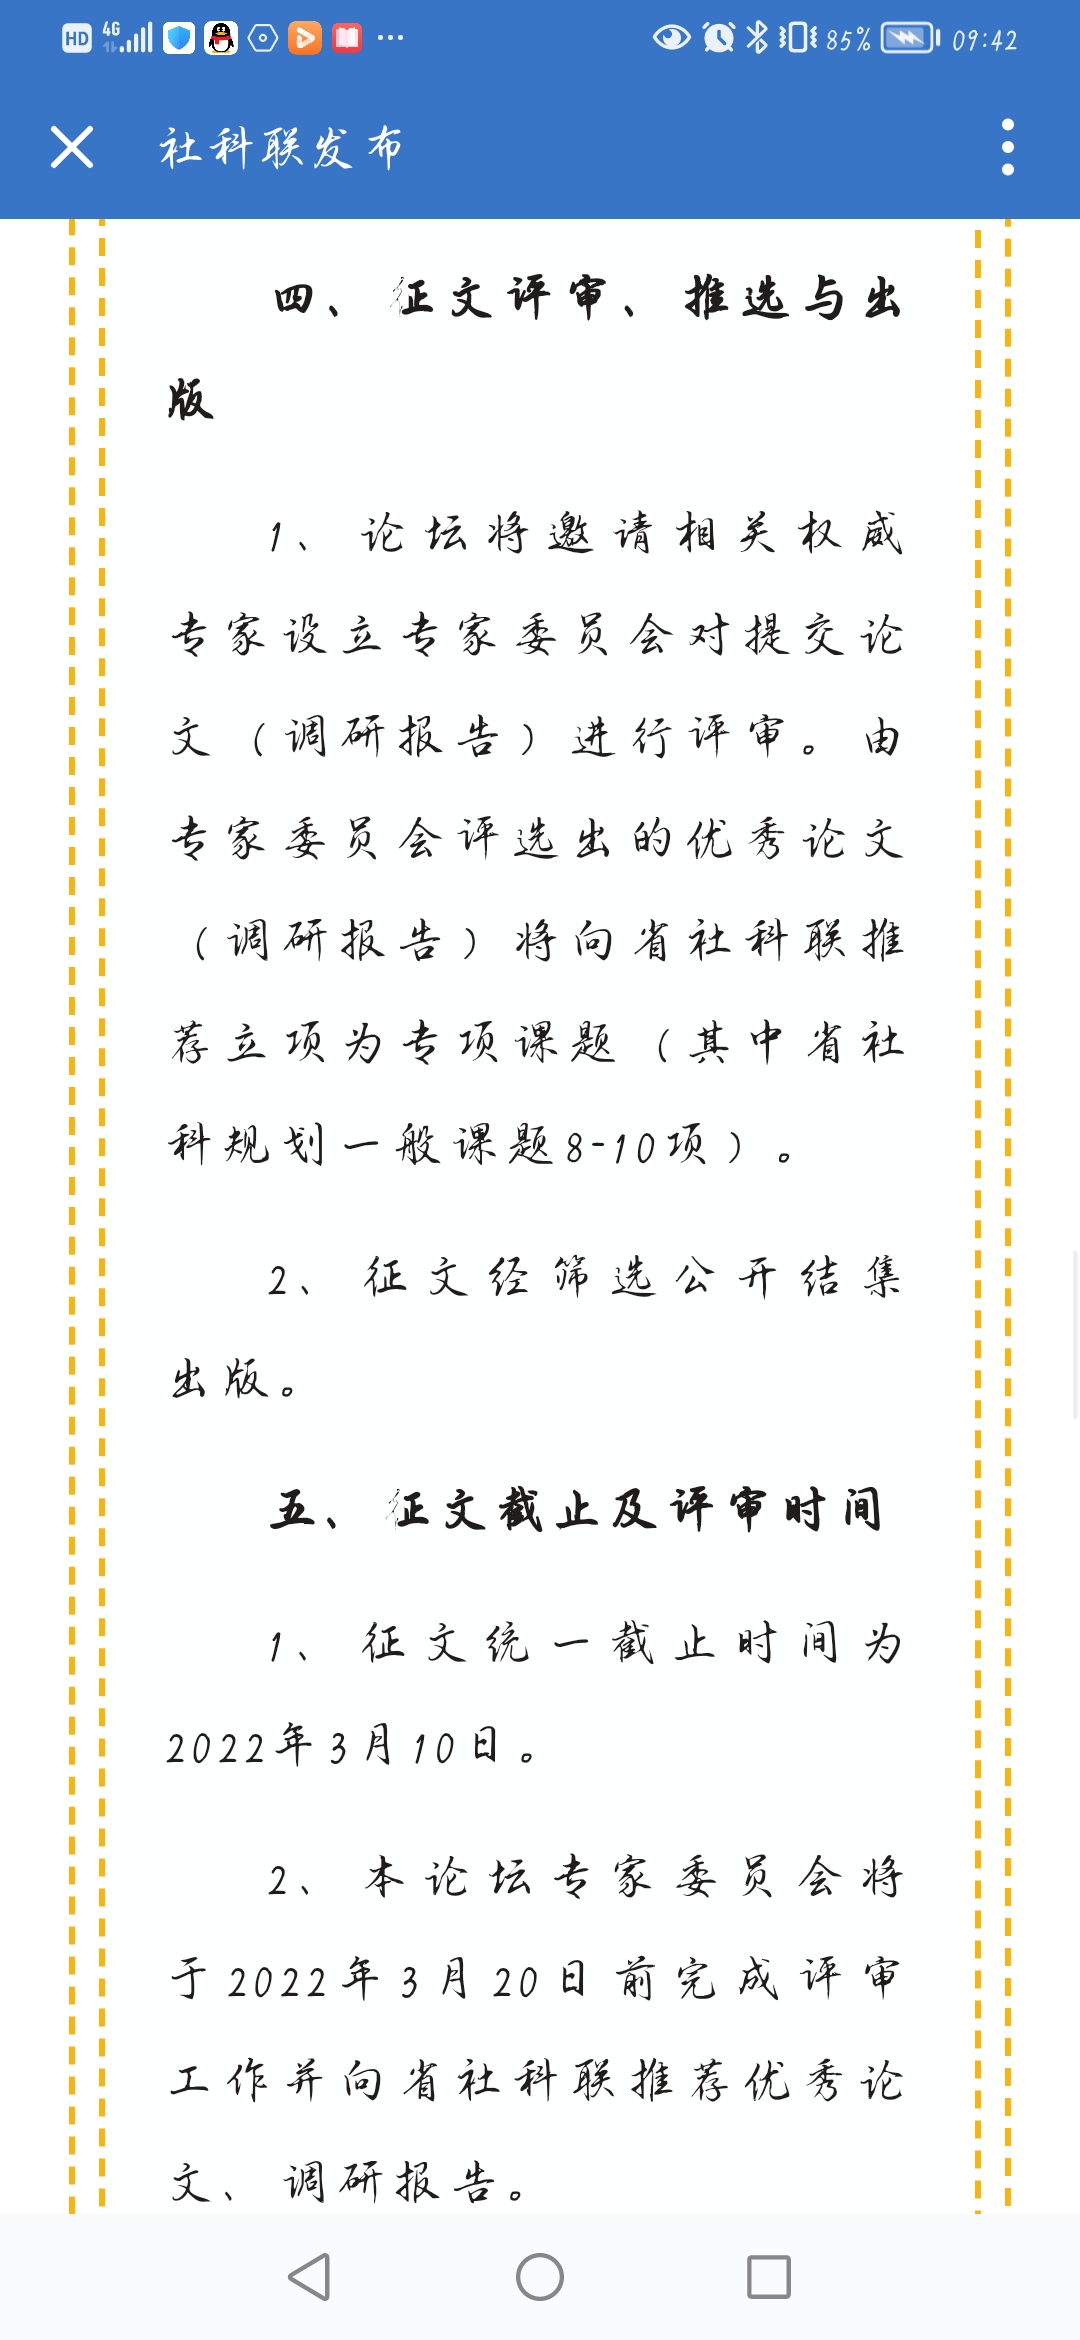 HD 4G 85% 09:42
社科联发布
四、征文评审、推选与出
版
1、论坛将邀请相关权威
专家设立专家委员会对提交论
文（调研报告）进行评审。由
专家委员会评选出的优秀论文
（调研报告）将向省社科联推
荐立项为专项课题（其中省社
科规划一般课题8-10项）。
2、征文经筛选公开结集
出版。
五、征文截止及评审时间
1、征文统一截止时间为
2022年3月10日。
2、本论坛专家委员会将
于2022年3月20日前完成评审
工作并向省社科联推荐优秀论
文、调研报告。